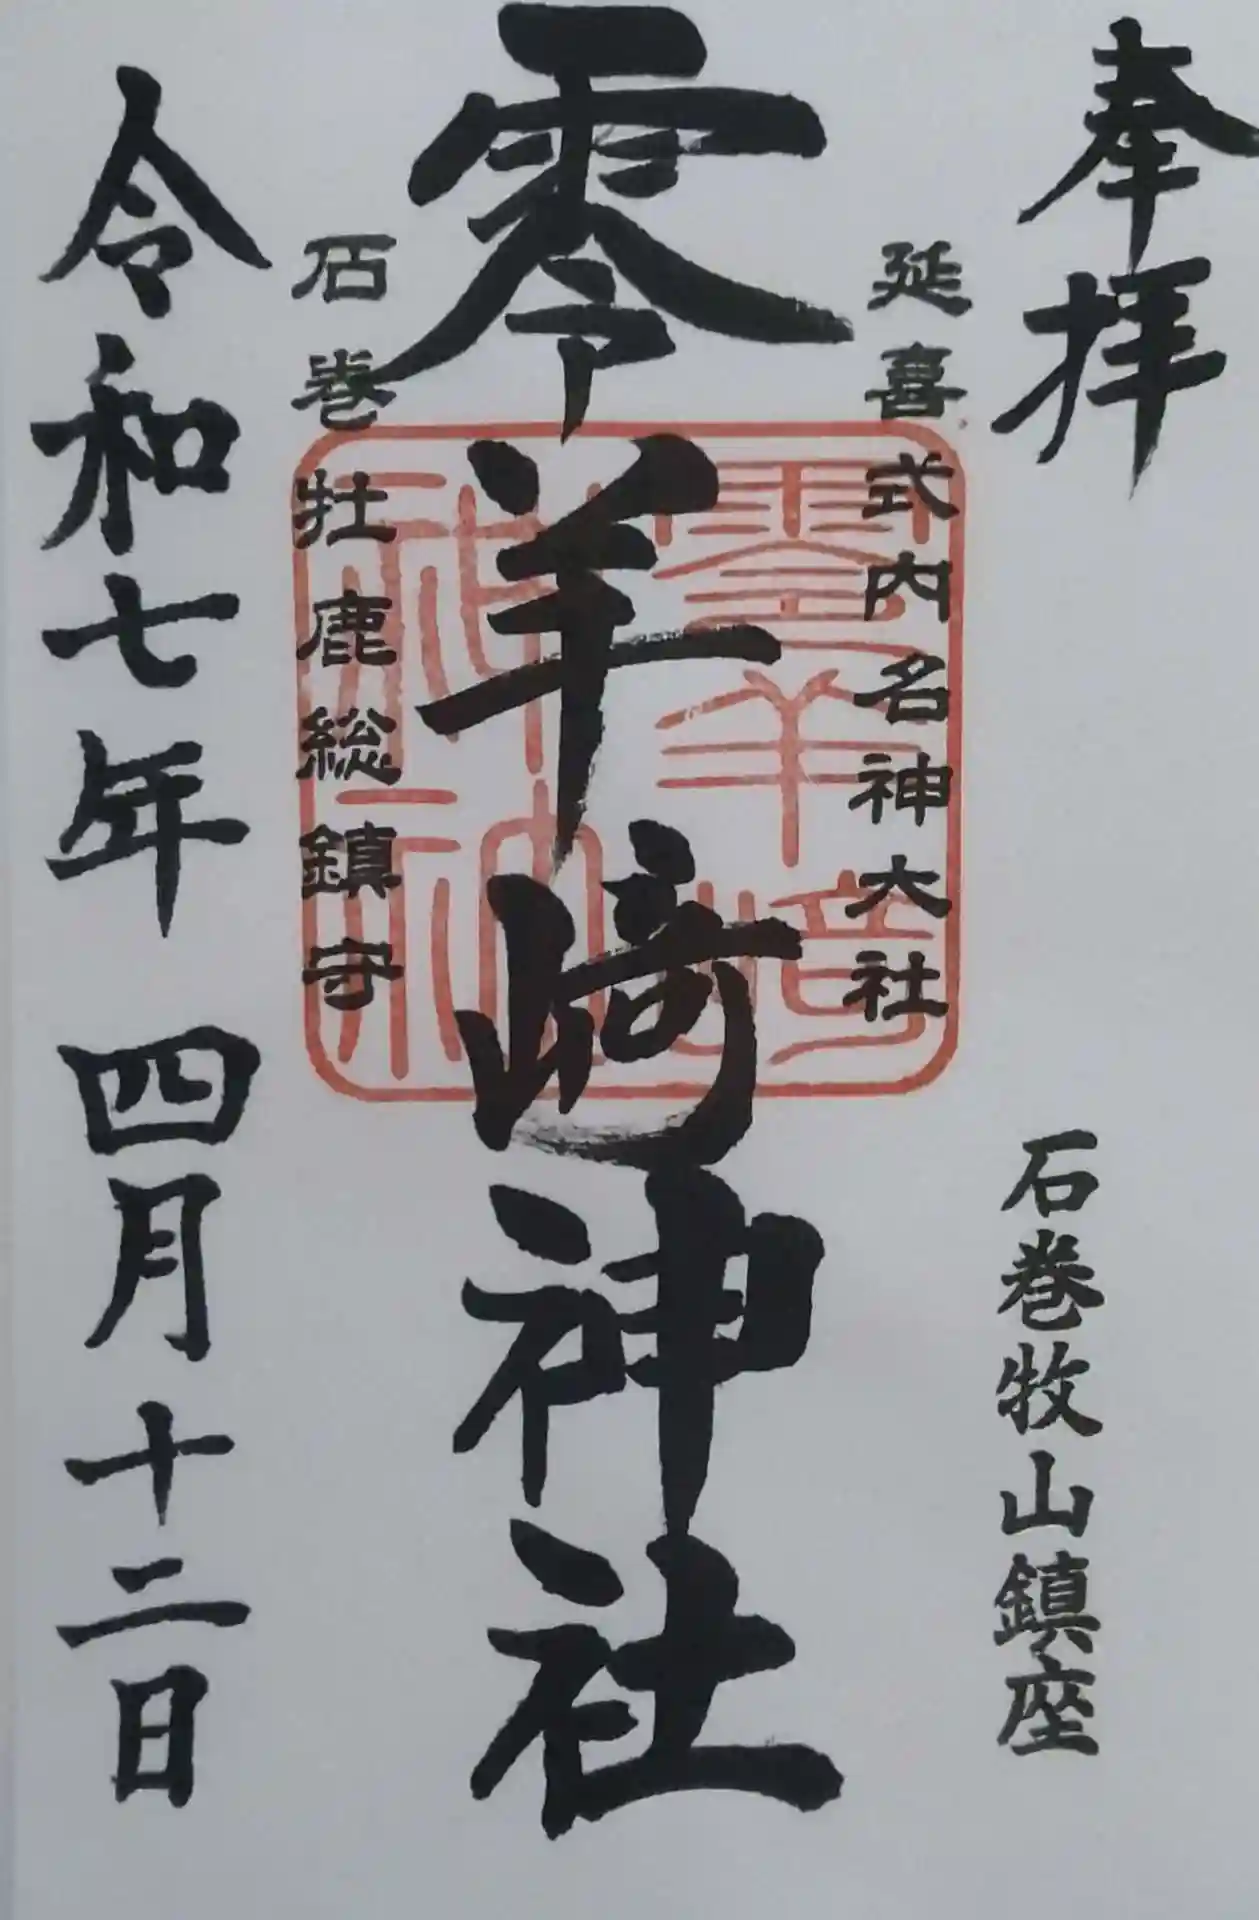 奉拝
石巻牧山鎮座
延喜式内名神大社
零羊崎神社
石巻牡鹿総鎮守
令和七年 四月十二日
零羊埼
神社